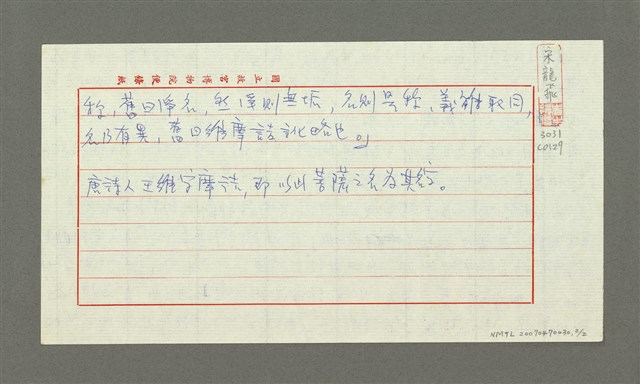 國立故宮博物院便條紙
稱，舊曰淨名，然淨則無垢，名則是稱，義雖取同，
名乃有異，舊曰維摩詰訛略也。」
唐詩人王維字摩詰，即以此菩薩之名為其字。
宋龍飛
3031
C0129
NMTL 20070470030.2/2